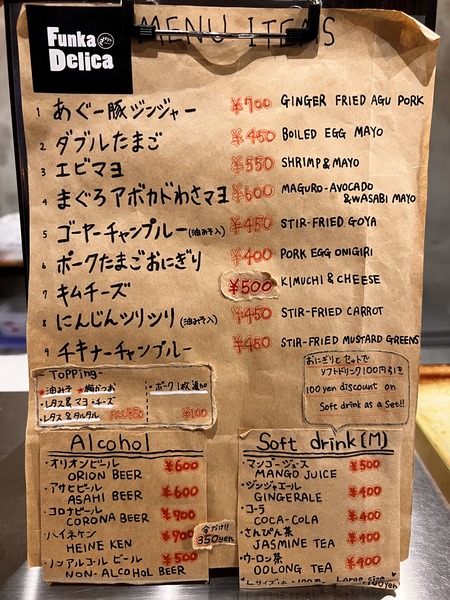 Funka
Delica
MENU ITEMS
1 あぐー豚ジンジャー ¥700 GINGER FRIED AGU PORK
2 ダブルたまご ¥450 BOILED EGG MAYO
3 エビマヨ ¥550 SHRIMP & MAYO
4 まぐろアボカドわさマヨ ¥600 MAGURO-AVOCADO
&WASABI MAYO
5 ゴーヤーチャンプルー(油みそ入) ¥450 STIR-FRIED GOYA
6 ポークたまごおにぎり ¥400 PORK EGG ONIGIRI
7 キムチーズ ¥500 KIMUCHI & CHEESE
8 にんじんシリシリ(油みそ入) ¥450 STIR-FRIED CARROT
9 チキナーチャンプルー ¥450 STIR-FRIED MUSTARD GREENS
-Topping-
★油みそ ★梅かつお
・レタス&マヨ・チーズ
・レタス&タルタル ALL ¥50
・ポーク1枚追加
¥100
おにぎりとセットで
ソフトドリンク100円引き
100 yen discount on
Soft drink as a Set!!
Alcohol
・オリオンビール ¥600
ORION BEER
・アサヒビール ¥600
ASAHI BEER
・コロナビール ¥700
CORONA BEER
・ハイネケン ¥700
HEINE KEN
・ノンアルコールビール ¥500
NON-ALCOHOL BEER
今だけ!!
350yen
Soft drink (M)
・マンゴージュース ¥500
MANGO JUICE
・ジンジャエール ¥400
GINGERALE
・コーラ ¥400
COCA-COLA
・さんぴん茶 ¥400
JASMINE TEA
・ウーロン茶 ¥400
OOLONG TEA
Large size